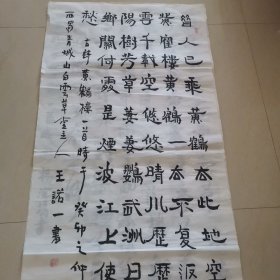 昔人已乘黄鶴去此地空
餘黄鶴樓黄鶴一去不復返
雲千載空悠悠晴川歷歷
陽樹芳草萋萋鸚鵡洲日
鄉關何處是煙波江上使
愁 古詩黄鶴樓一首時于癸卯之仲
西蜀青城山白雲草堂主人王諾一書